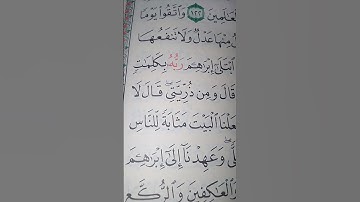 ٱلۡعَٰلَمِينَ ١٢٢ وَٱتَّقُواْ يَوۡمٗا
مِنۡهَا عَدۡلٞ وَلَا تَنفَعُهَا
ٱبۡتَلَىٰٓ إِبۡرَٰهِـۧمَ رَبُّهُۥ بِكَلِمَٰتٖ
قَالَ وَمِن ذُرِّيَّتِيۖ قَالَ لَا
جَعَلۡنَا ٱلۡبَيۡتَ مَثَابَةٗ لِّلنَّاسِ
لّٗىۖ وَعَهِدۡنَآ إِلَىٰٓ إِبۡرَٰهِـۧمَ
وَٱلۡعَٰكِفِينَ وَٱلرُّكَّعِ